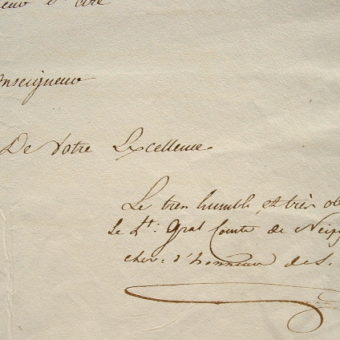 d'être
onseigneur
De Votre Excellence
Le très humble et très ob
le Lt: Gral Comte de Neip
chev: d'honneur de S.